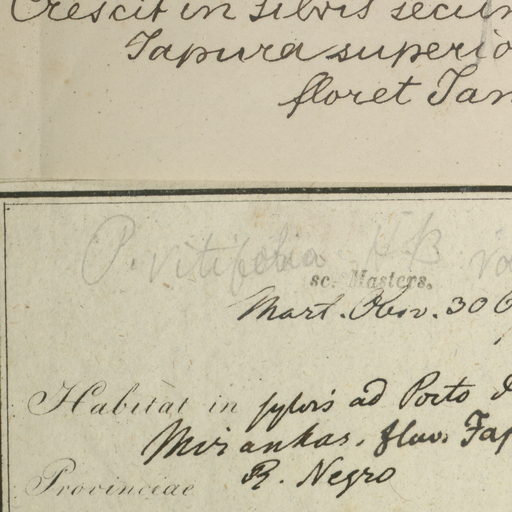 Crescit in silvis secun
Japura superio
floret Jan
P. vitifolia HB va
sc. Masters.
Mart. Obs. 30
Habitat in sylvis ad Porto d
Miranhas, fluv. Jap
Provinciae R. Negro